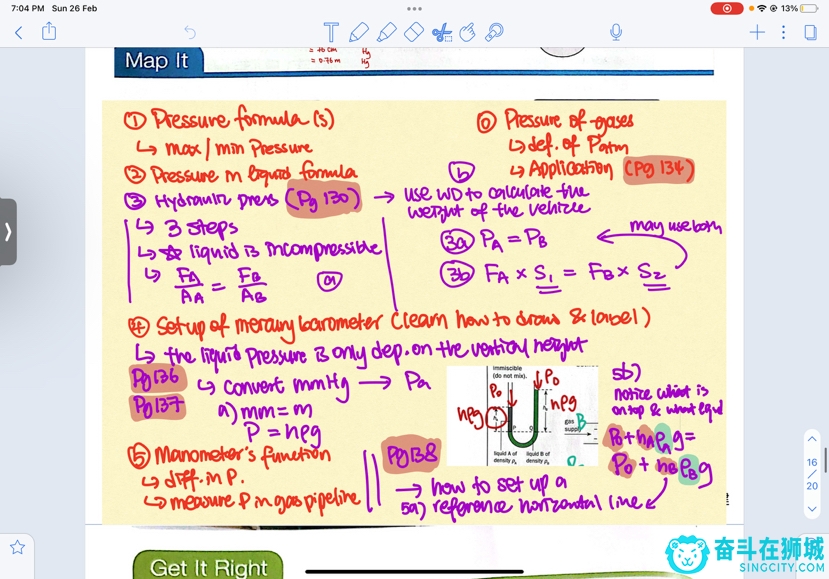 7:04 PM Sun 26 Feb
13%
= 76 cm Hg
= 0.76 m Hg
Map It
① Pressure formula (s)
↳ max / min Pressure
② Pressure in liquid formula
③ Hydraulic press (Pg 130)
↳ 3 steps
↳ ☆ liquid is incompressible
↳ FA/AA = FB/AB ⓐ
⓪ Pressure of gases
↳ def. of Patm
↳ Application (Pg 134)
ⓑ
→ use WD to calculate the
weight of the vehicle
3a PA = PB
may use both
3b FA × S1 = FB × S2
④ Setup of mercury barometer (learn how to draw & label)
↳ the liquid pressure is only dep. on the vertical height
Pg 136
Pg 137
↳ convert mmHg → Pa
a) mm = m
P = hρg
⑤ Manometer's function
↳ diff. in P.
↳ measure P in gas pipeline
Pg 138
→ how to set up a
5a) reference horizontal line
immiscible
(do not mix).
P0
P0
hρg
hρg
gas
supply
B
liquid A of
density ρA
liquid B of
density ρB
5b)
notice what is
on top & what equal
P0 + hAρAg =
P0 + hBρBg
16
20
Get It Right
奋斗在狮城
SINGCITY.COM